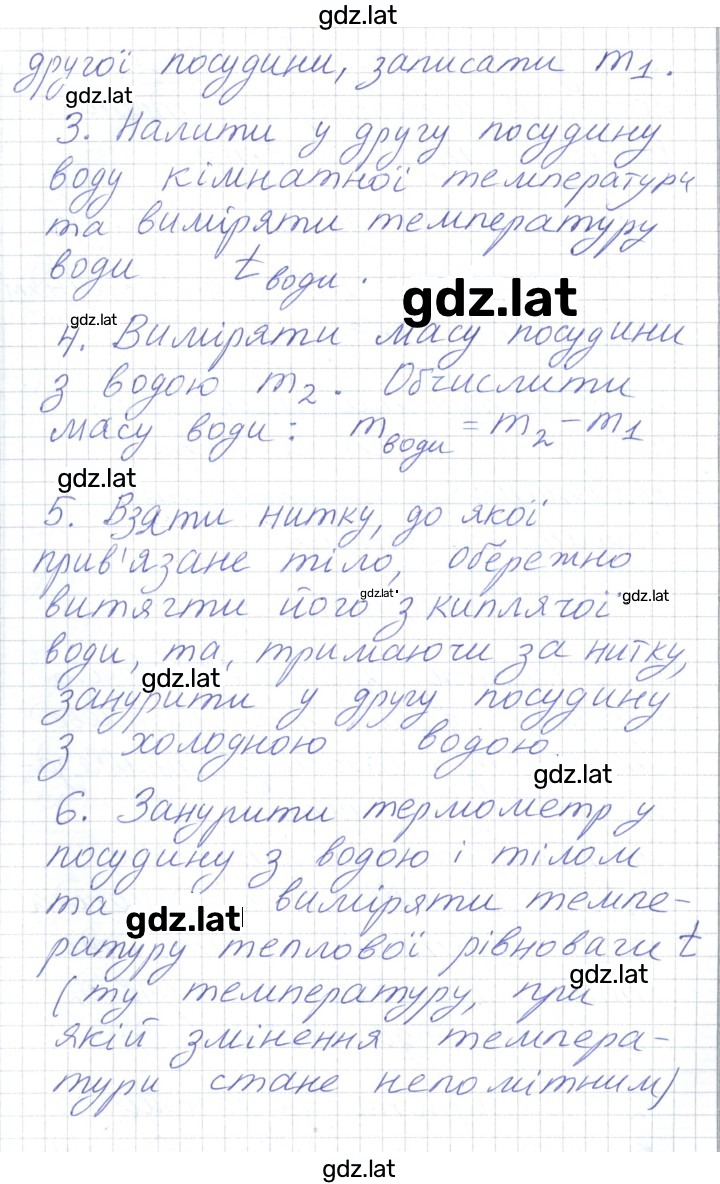 gdz.lat
другої посудини, записати m₁.
gdz.lat
3. Налити у другу посудину
воду кімнатної температури
та виміряти температуру
води t води.
gdz.lat
gdz.lat
4. Виміряти масу посудини
з водою m₂. Обчислити
масу води: m води = m₂ - m₁
gdz.lat
5. Взяти нитку, до якої
прив'язане тіло, обережно
витягти його з киплячої
gdz.lat
gdz.lat
води, та, тримаючи за нитку,
gdz.lat
занурити у другу посудину
з холодною водою.
gdz.lat
6. Занурити термометр у
посудину з водою і тілом
та виміряти темпе-
gdz.lat
ратуру теплової рівноваги t
gdz.lat
(ту температуру, при
якій змінення темпера-
тури стане непомітним)
gdz.lat